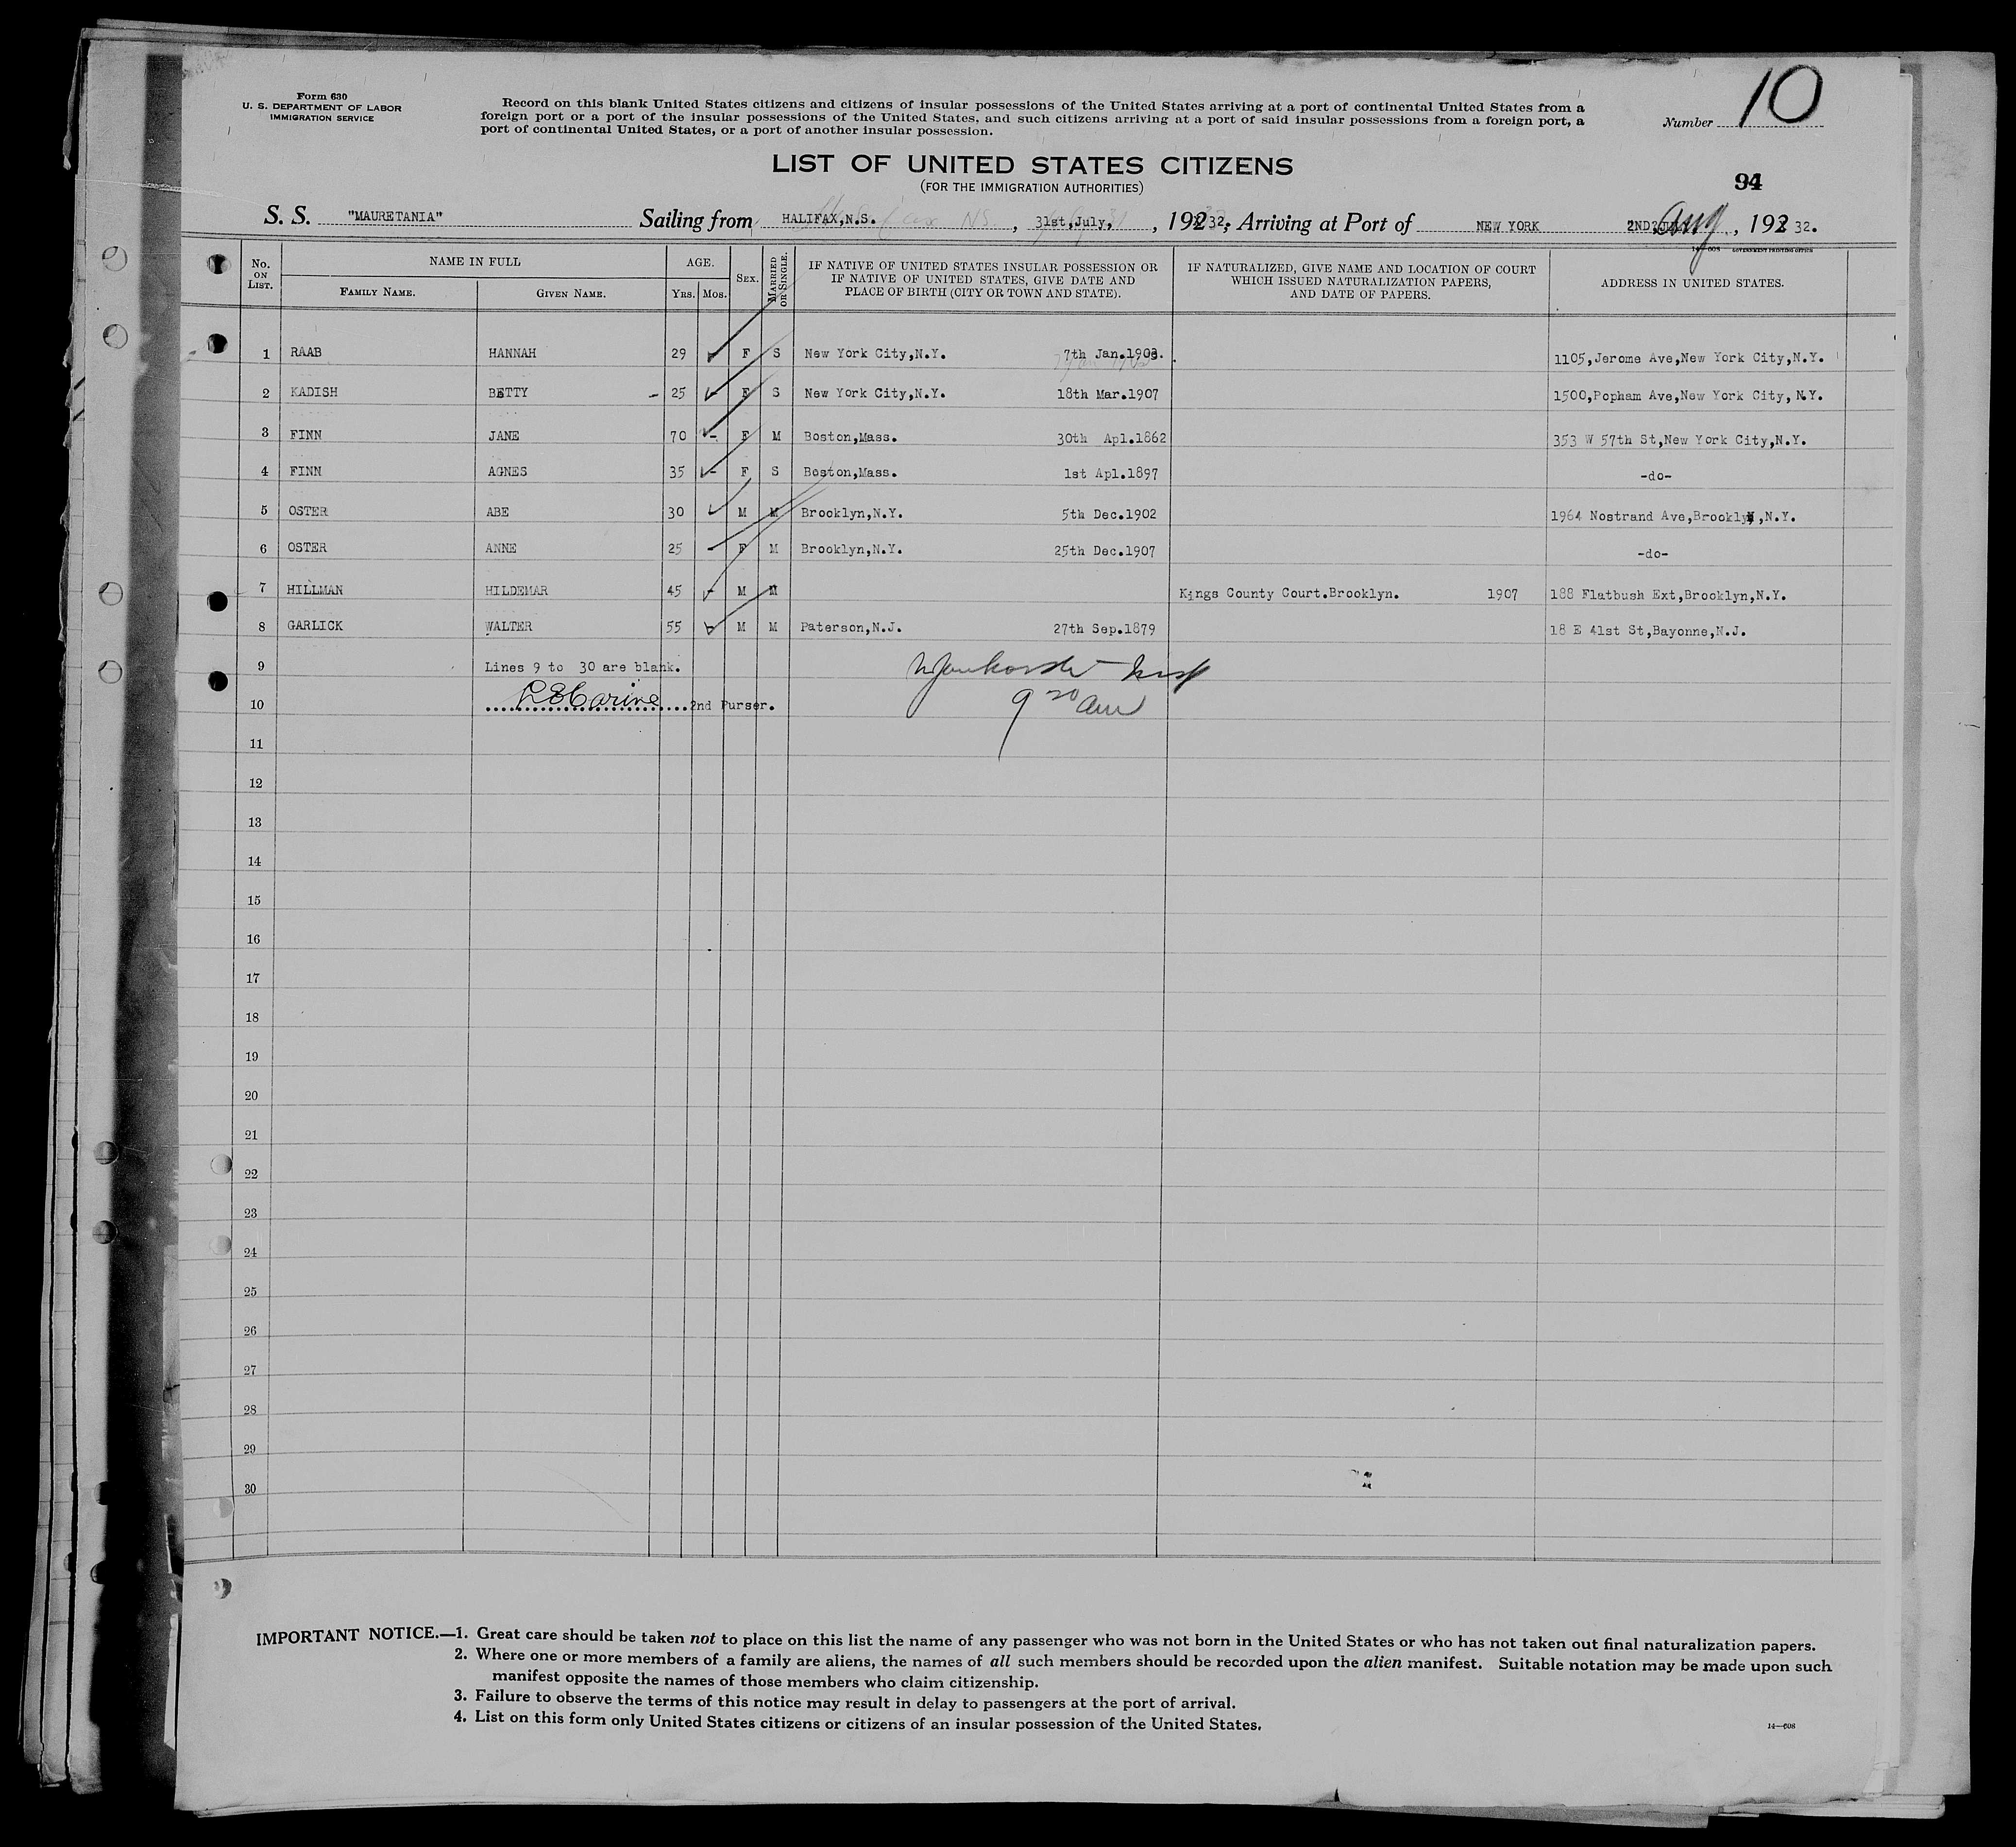 Form 630
U. S. DEPARTMENT OF LABOR
IMMIGRATION SERVICE
Record on this blank United States citizens and citizens of insular possessions of the United States arriving at a port of continental United States from a
foreign port or a port of the insular possessions of the United States, and such citizens arriving at a port of said insular possessions from a foreign port, a
port of continental United States, or a port of another insular possession.
Number 10
LIST OF UNITED STATES CITIZENS
(FOR THE IMMIGRATION AUTHORITIES)
94
S. S. "MAURETANIA" Sailing from HALIFAX,N.S. , 31st,July, , 192 32, Arriving at Port of NEW YORK 2ND Aug , 192 32.
14-608 GOVERNMENT PRINTING OFFICE
No. ON LIST. NAME IN FULL AGE. SEX. MARRIED OR SINGLE. IF NATIVE OF UNITED STATES INSULAR POSSESSION OR IF NATIVE OF UNITED STATES, GIVE DATE AND PLACE OF BIRTH (CITY OR TOWN AND STATE). IF NATURALIZED, GIVE NAME AND LOCATION OF COURT WHICH ISSUED NATURALIZATION PAPERS, AND DATE OF PAPERS. ADDRESS IN UNITED STATES.
FAMILY NAME. GIVEN NAME. YRS. MOS.
1 RAAB HANNAH 29 F S New York City,N.Y. 7th Jan.1903. 1105,Jerome Ave,New York City,N.Y.
2 KADISH BETTY - 25 F S New York City,N.Y. 18th Mar.1907 1500,Popham Ave,New York City, N.Y.
3 FINN JANE 70 - F M Boston,Mass. 30th Apl.1862 353 W 57th St,New York City,N.Y.
4 FINN AGNES 35 - F S Boston,Mass. 1st Apl.1897 -do-
5 OSTER ABE 30 M M Brooklyn,N.Y. 5th Dec.1902 1964 Nostrand Ave,Brooklyn,N.Y.
6 OSTER ANNE 25 F M Brooklyn,N.Y. 25th Dec.1907 -do-
7 HILLMAN HILDEMAR 45 - M M Kings County Court.Brooklyn. 1907 188 Flatbush Ext,Brooklyn,N.Y.
8 GARLICK WALTER 55 M M Paterson,N.J. 27th Sep.1879 18 E 41st St,Bayonne,N.J.
9 Lines 9 to 30 are blank.
10 2nd Purser. 9 30 am
11
12
13
14
15
16
17
18
19
20
21
22
23
24
25
26
27
28
29
30
IMPORTANT NOTICE.—1. Great care should be taken not to place on this list the name of any passenger who was not born in the United States or who has not taken out final naturalization papers.
2. Where one or more members of a family are aliens, the names of all such members should be recorded upon the alien manifest. Suitable notation may be made upon such
manifest opposite the names of those members who claim citizenship.
3. Failure to observe the terms of this notice may result in delay to passengers at the port of arrival.
4. List on this form only United States citizens or citizens of an insular possession of the United States.
14—608